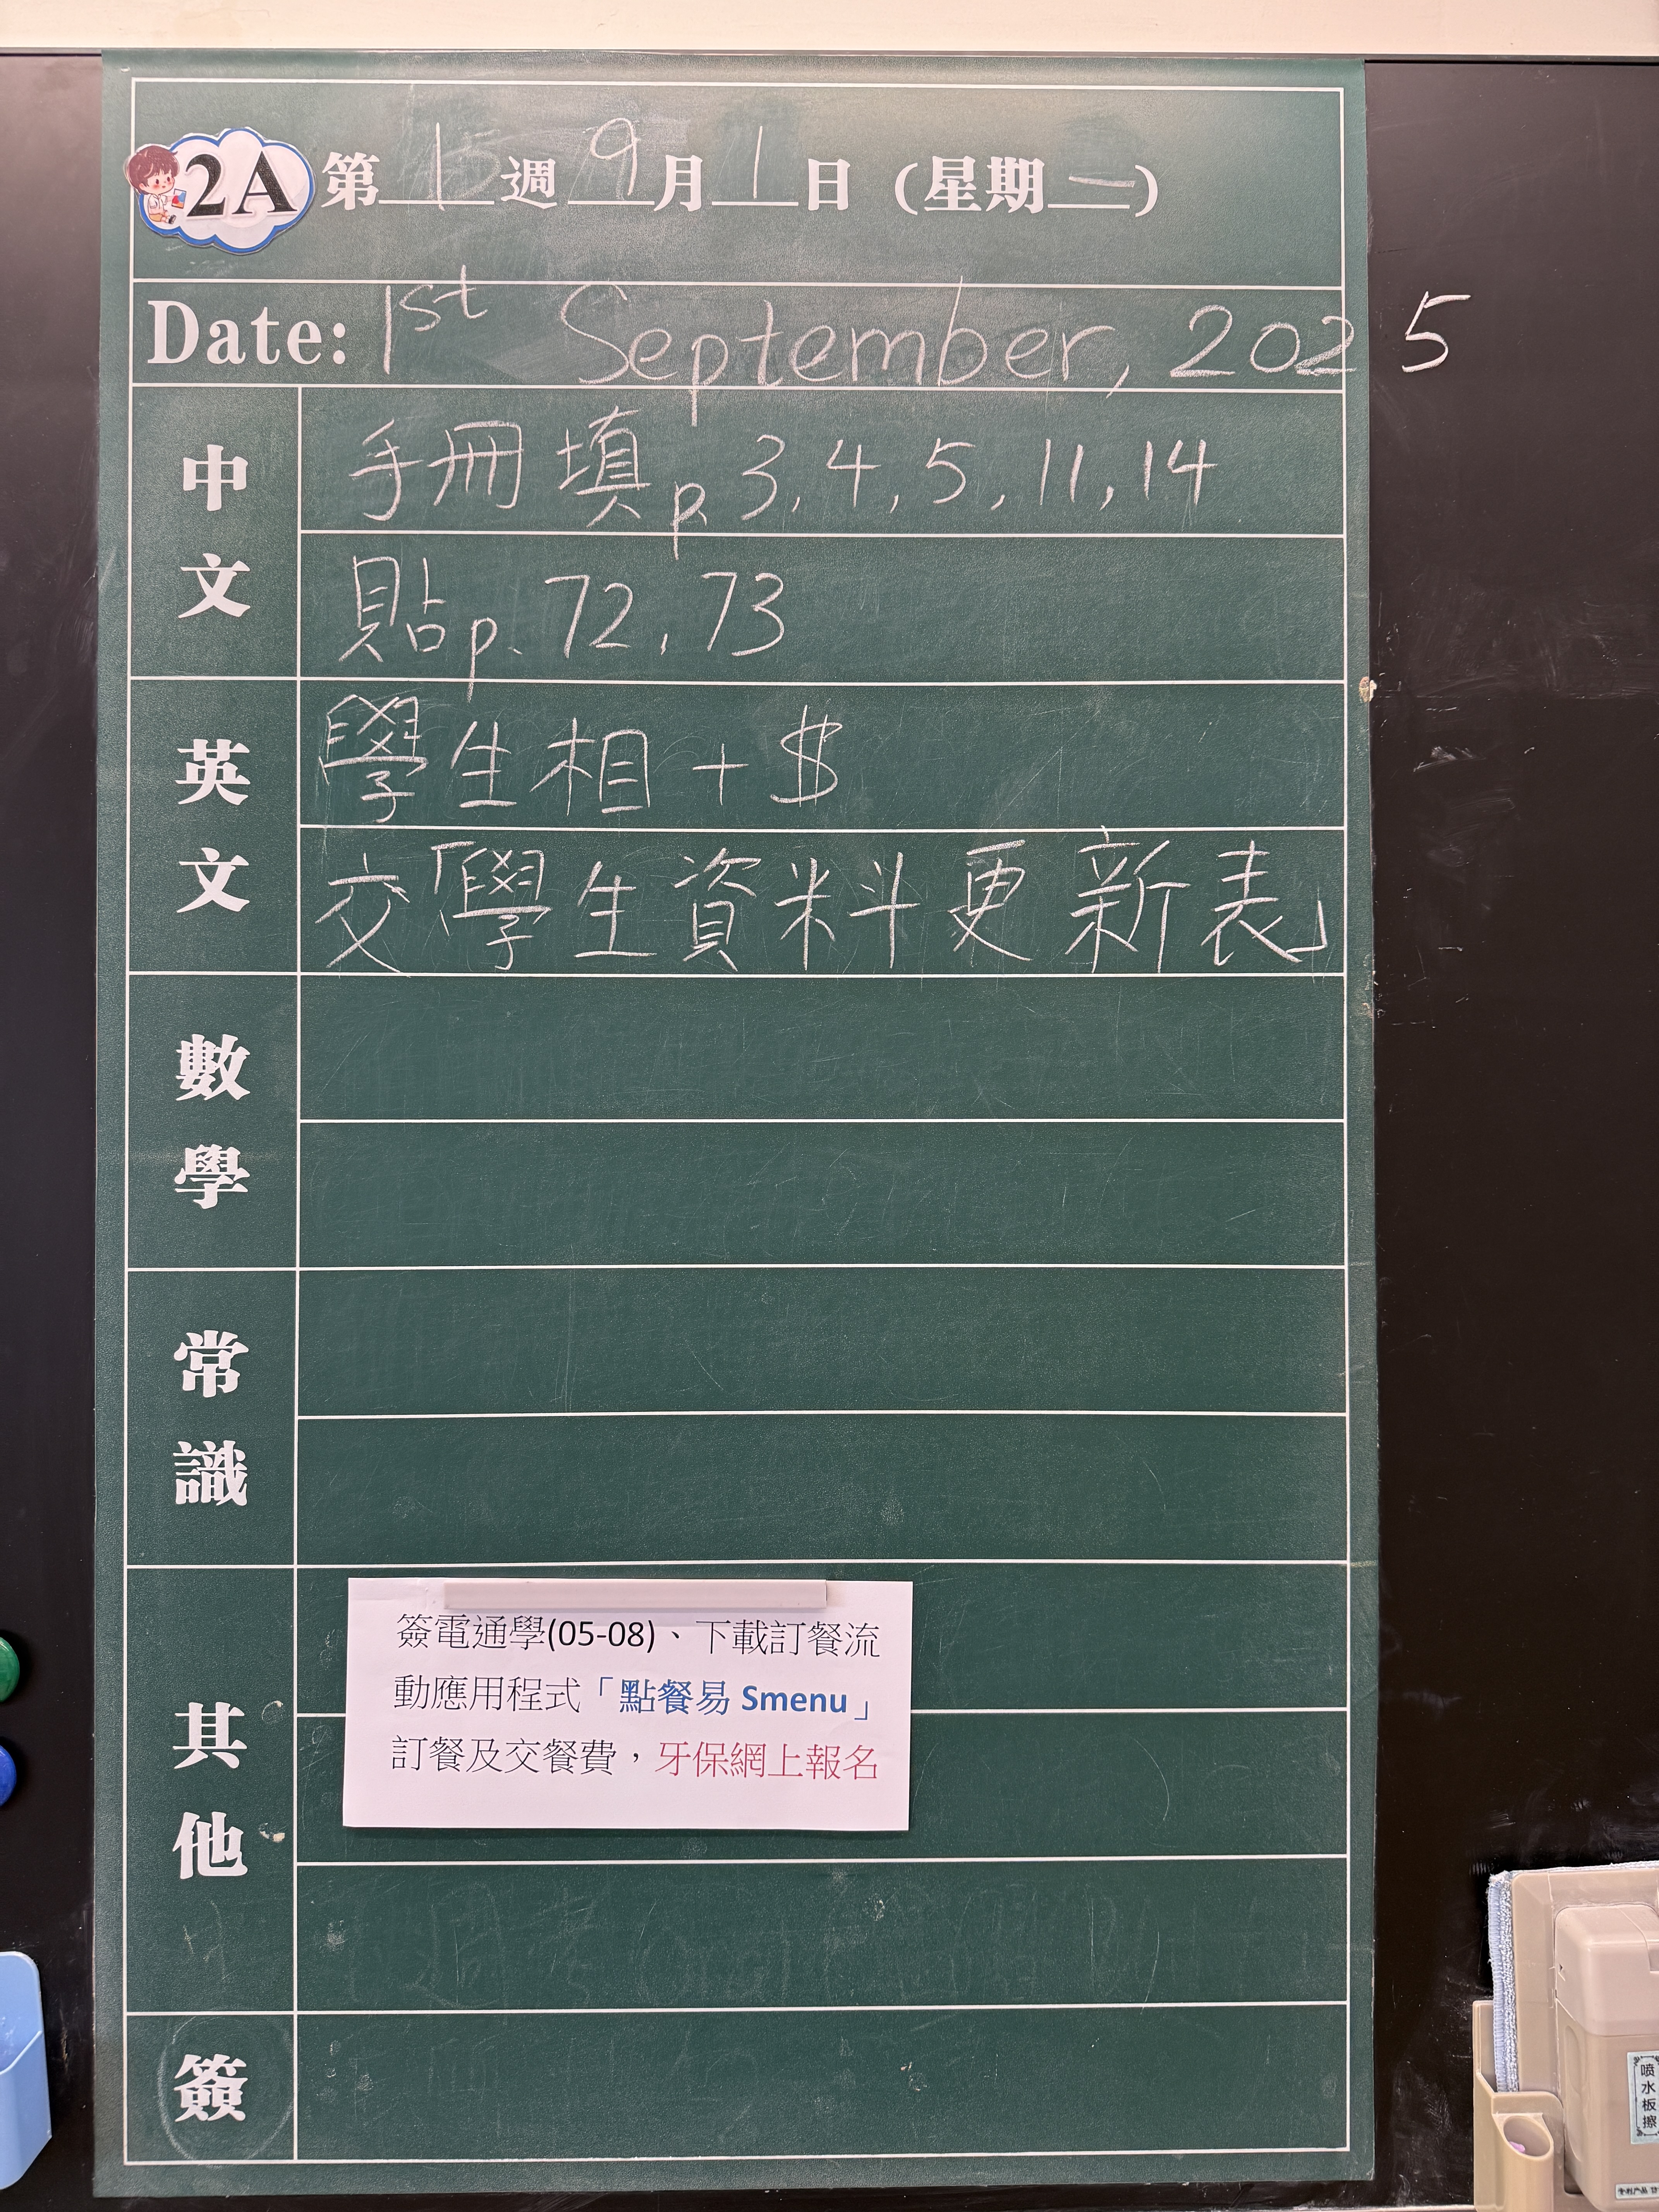 2A 第1週 9月1日 (星期一)
Date: 1st September, 2025
中文
手冊 填p. 3, 4, 5, 11, 14
貼p. 72, 73
英文
學生相 + $
交「學生資料更新表」
數學
常識
其他
簽電通學(05-08)、下載訂餐流
動應用程式「點餐易 Smenu」
訂餐及交餐費，牙保網上報名
簽
喷水板擦